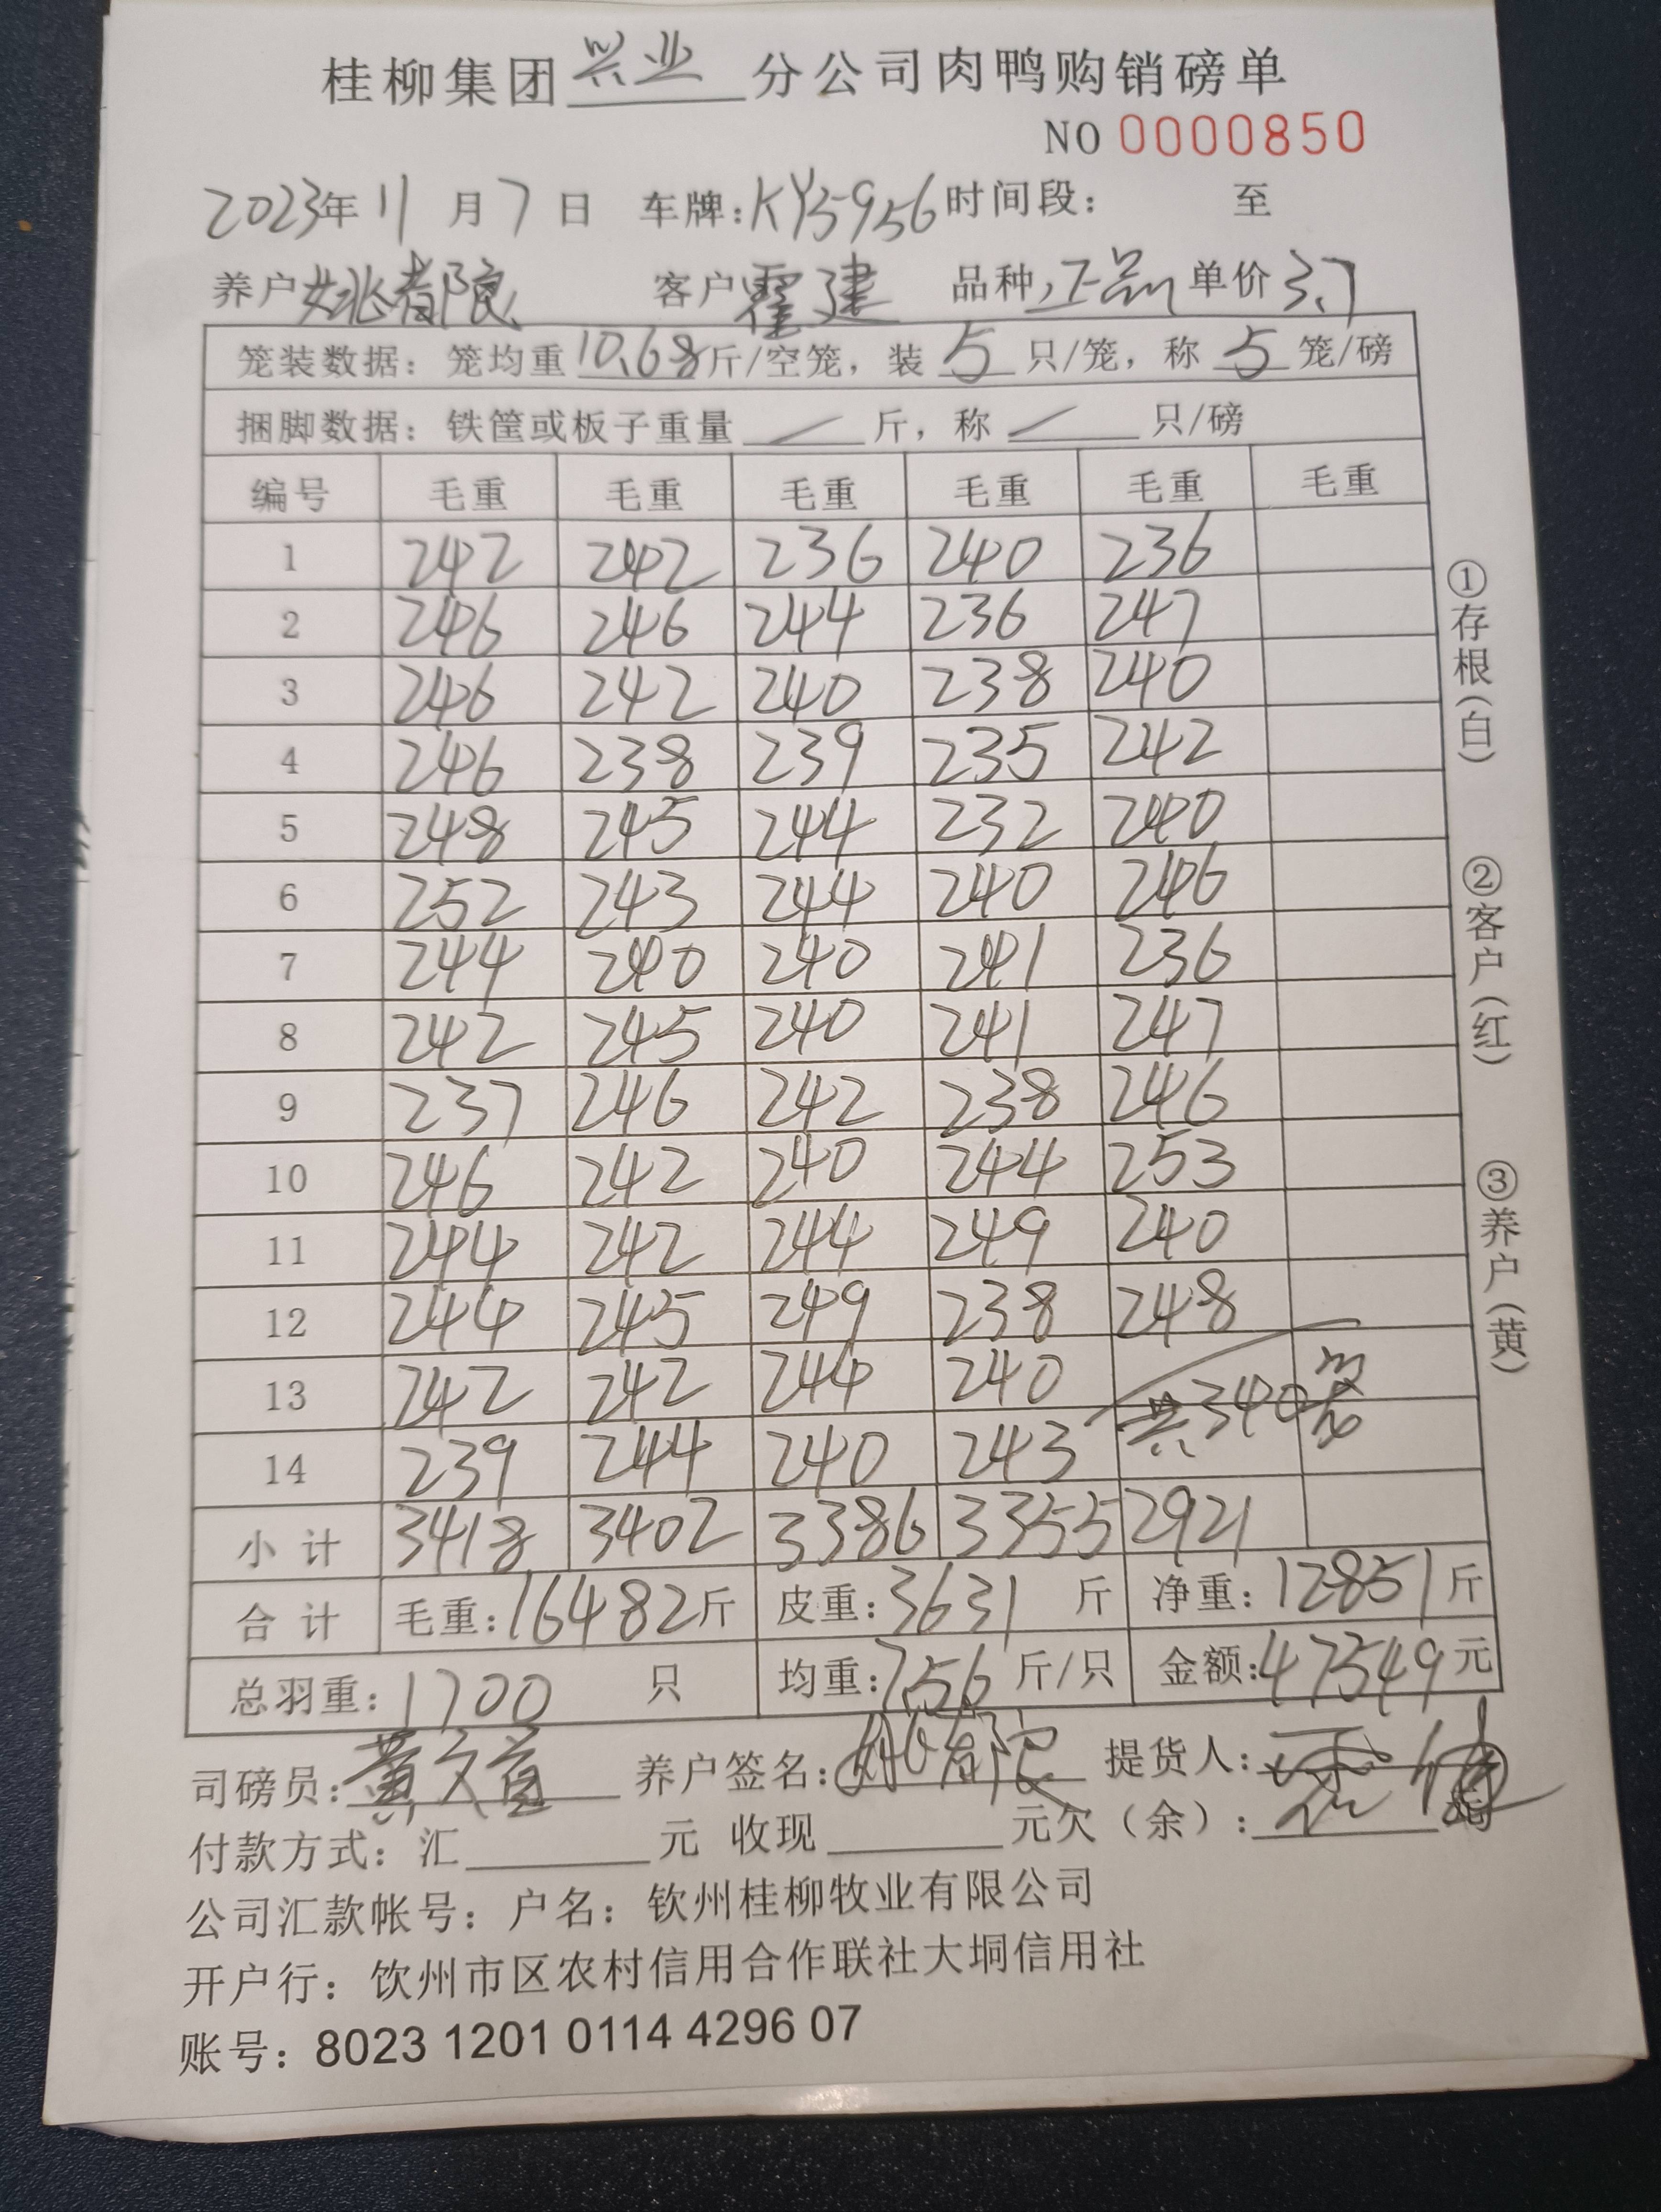 桂柳集团兴业分公司肉鸭购销磅单
NO 0000850
2023年11月7日 车牌:KY5956 时间段: 至
养户姚春阳 客户霍建 品种正品 单价3.7
笼装数据:笼均重10.68斤/空笼,装5只/笼,称5笼/磅
捆脚数据:铁筐或板子重量 / 斤,称 / 只/磅
编号 毛重 毛重 毛重 毛重 毛重 毛重
1 242 242 236 240 236
2 246 246 244 236 247
3 246 242 240 238 240
4 246 238 239 235 242
5 248 245 244 232 240
6 252 243 244 240 246
7 244 240 240 241 236
8 242 245 240 241 247
9 237 246 242 238 246
10 246 242 240 244 253
11 244 242 244 249 240
12 244 245 249 238 248
13 242 242 244 240
14 239 244 240 243 共340笼
小计 3418 3402 3386 3355 2921
合计 毛重:16482斤 皮重:3631斤 净重:12851斤
总羽重:1700只 均重:7.56斤/只 金额:47549元
司磅员: 养户签名: 提货人:
付款方式:汇 元 收现 元欠(余):
公司汇款帐号:户名:钦州桂柳牧业有限公司
开户行:饮州市区农村信用合作联社大垌信用社
账号:8023 1201 0114 4296 07
①存根(白) ②客户(红) ③养户(黄)